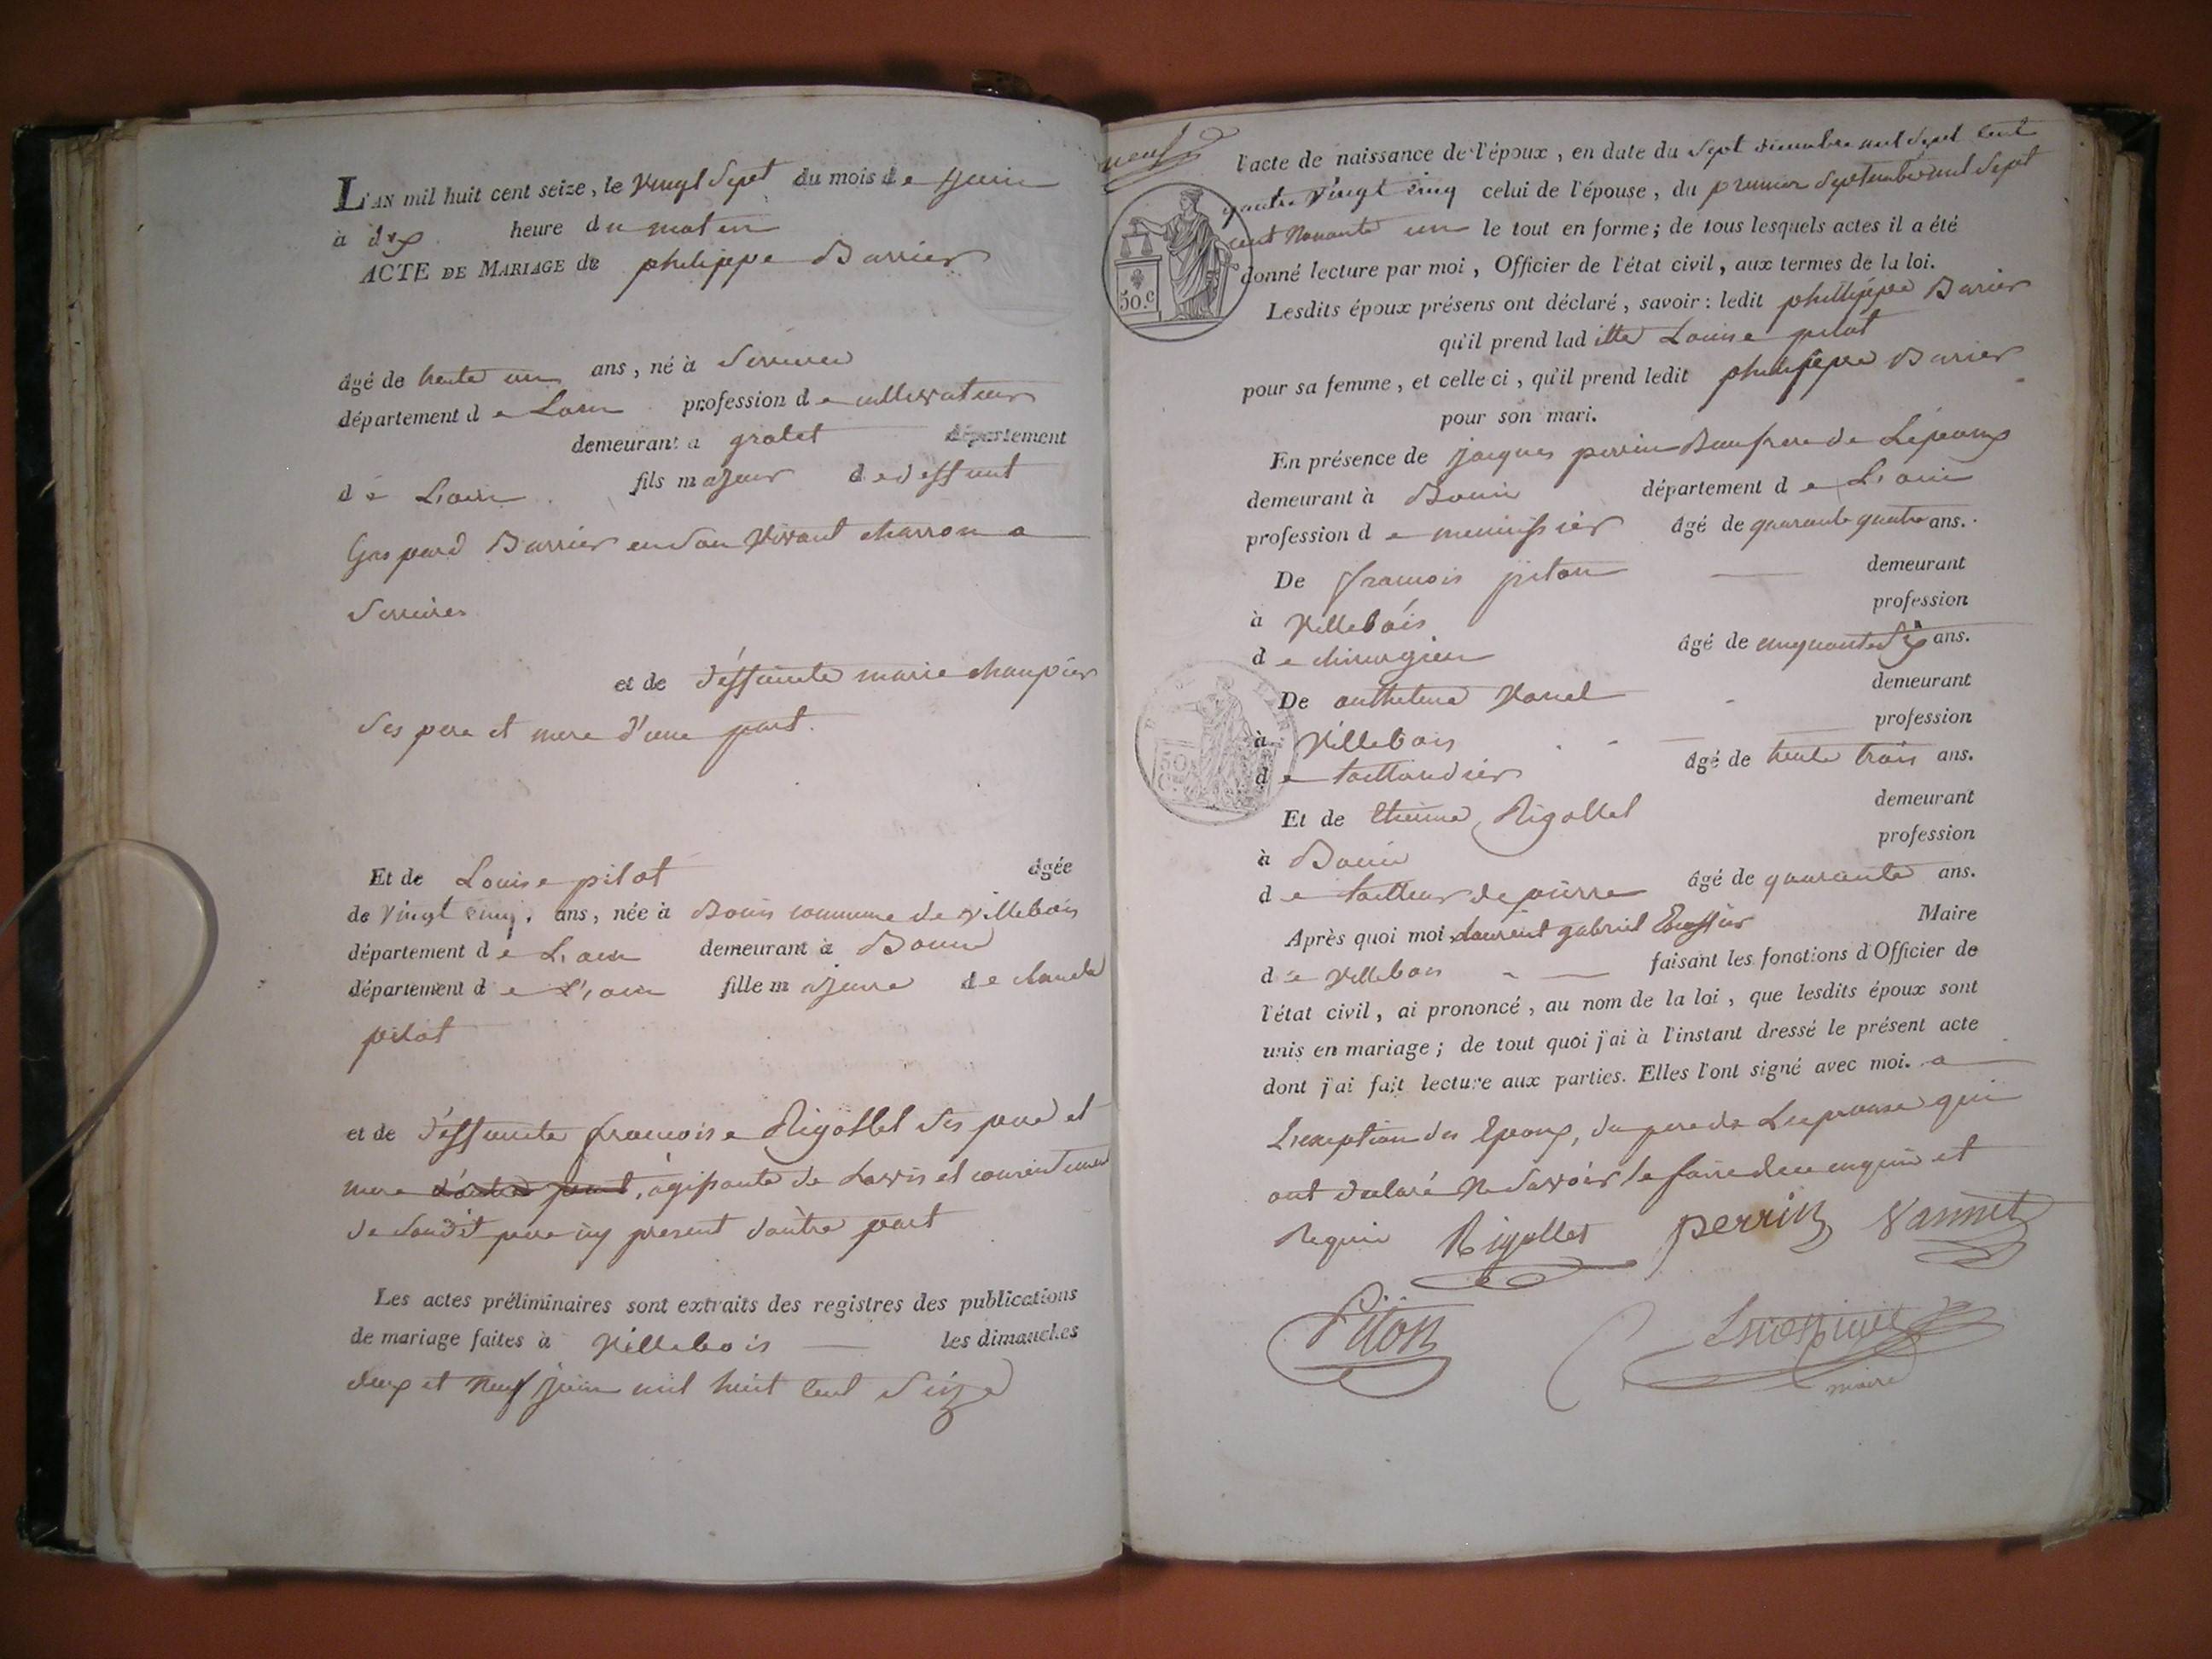 L'AN mil huit cent seize, le vingt sept du mois de juin
à dix heure du matin
ACTE DE MARIAGE de philippe Barrier
âgé de trente un ans, né à Serrieres
département de Lain profession de cultivateur
demeurant a grolet département
de L'ain fils majeur de deffunt
Gaspard Barrier en son vivant charron a
Serrieres
et de deffunte marie
ses pere et mere d'une part.
Et de Louise pilot âgée
de vingt cinq, ans, née à Bouis commune de villebois
département de L'ain demeurant à Bouis
département de L'ain fille majeure de claude
pilot
et de deffunte francoise Rigollet ses pere et
mere d'autre part, agissante de Lavis et consentement
de sondit pere icy present dautre part
Les actes préliminaires sont extraits des registres des publications
de mariage faites à villebois les dimanches
deux et neuf juin mil huit cent seize
neuf
l'acte de naissance de l'époux, en date du sept mil sept cent
quatre vingt cinq celui de l'épouse, du premier septembre mil sept
cent nonante un le tout en forme; de tous lesquels actes il a été
donné lecture par moi, Officier de l'état civil, aux termes de la loi.
50.c
Lesdits époux présens ont déclaré, savoir: ledit philippe Barier
qu'il prend laditte Louise pilot
pour sa femme, et celle ci, qu'il prend ledit philippe Barier
pour son mari.
En présence de jacques perrin Beaufrere de Lepoux
demeurant à Bouis département de L'ain
profession de menuissier âgé de quarante quatre ans.
De francois piton demeurant
à villebois profession
de chirurgien âgé de cinquante six ans.
De anthelme demeurant
à villebois profession
de taillandier âgé de trente trois ans.
Et de Etienne Rigollet demeurant
à Bouis profession
de tailleur de pierre âgé de quarante ans.
Après quoi moi Laurent gabriel Maire
de villebois faisant les fonctions d'Officier de
l'état civil, ai prononcé, au nom de la loi, que lesdits époux sont
unis en mariage; de tout quoi j'ai à l'instant dressé le présent acte
dont j'ai fait lecture aux parties. Elles l'ont signé avec moi. a
Lexception des Epoux, du pere de Lepouse qui
ont declaré ne savoir le faire de ce enquis et
requis Rigollet perrin Vannet
Piton
maire